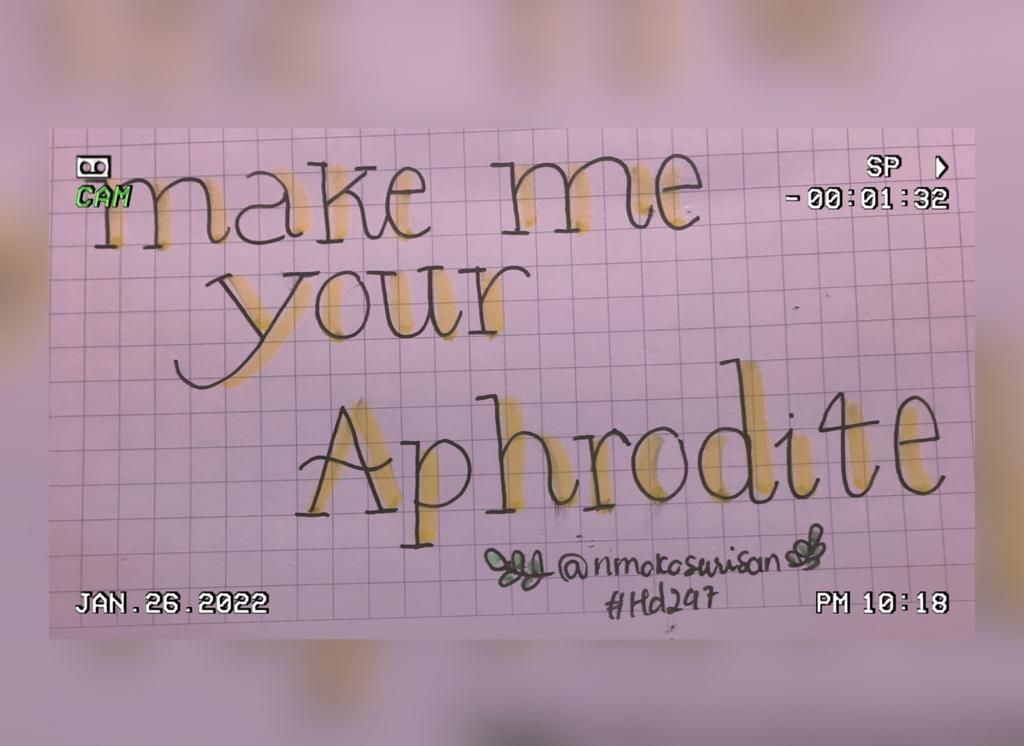 CAM
SP
-00:01:32
make me
your
Aphrodite
@nmokasurisan
#Hd297
JAN.26.2022
PM 10:18